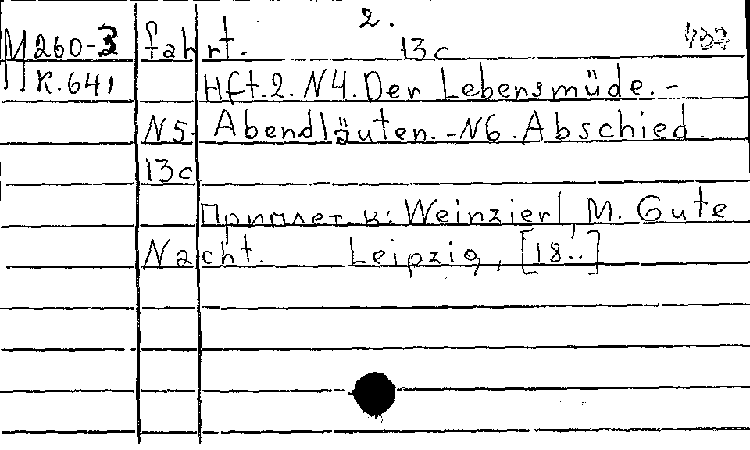 2.
М260-3 fahrt. 13c
К.641 Hft.2. N4. Der Lebensmüde.-
N5. Abendläuten. -N6. Abschied.
13c
Приплет. к: Weinzierl, M. Gute
Nacht. Leipzig, [18..]